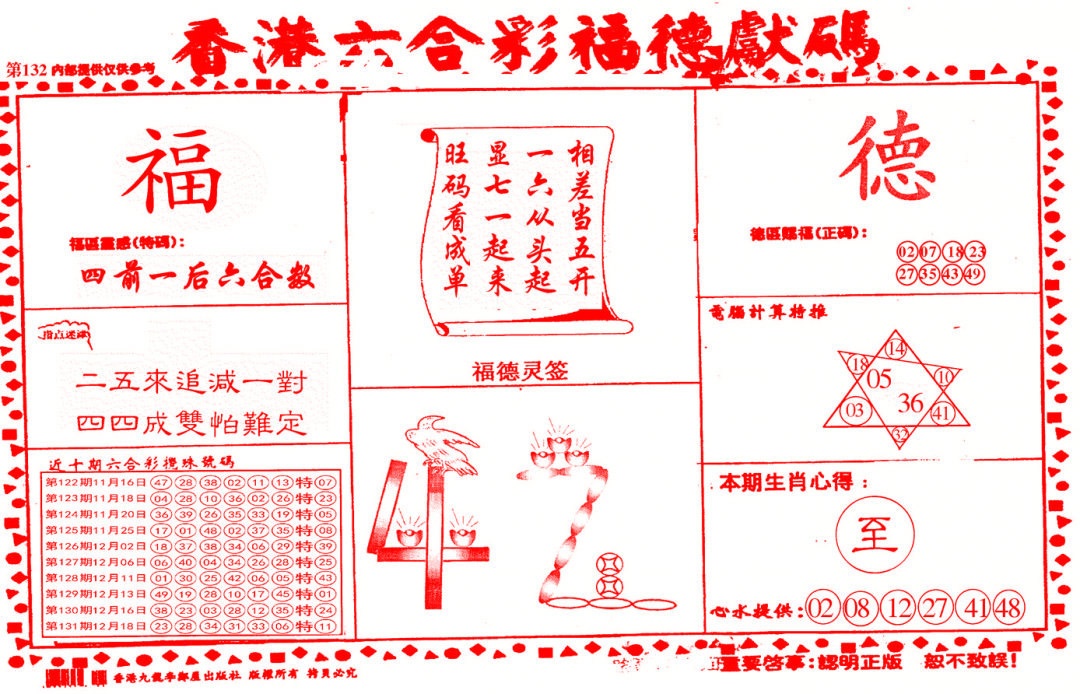 香港六合彩福德獻碼
第132 内部提供仅供参考
福
福區靈感(特碼):
四前一后六合数
指点迷津
二五來追减一對
四四成雙怕難定
近十期六合彩攪珠號碼
第122期11月16日 47 28 38 02 11 13 特 07
第123期11月18日 04 28 10 36 02 26 特 23
第124期11月20日 36 39 26 35 33 19 特 05
第125期11月25日 17 01 48 02 37 35 特 08
第126期12月02日 18 37 38 34 06 29 特 39
第127期12月06日 06 40 04 34 26 28 特 25
第128期12月11日 01 30 25 42 06 05 特 43
第129期12月13日 49 19 28 10 17 45 特 01
第130期12月16日 38 23 03 28 12 35 特 24
第131期12月18日 23 28 34 31 33 06 特 11
相差当五开
一六从头起
显七一起来
旺码看成单
福德灵签
德
德區賜福(正碼):
02 07 18 23
27 35 43 49
電腦計算特推
14
18 05 10
03 36 41
32
本期生肖心得:
至
心水提供: 02 08 12 27 41 48
香港九龍李鄭屋出版社 版權所有 拷貝必究
重要啓事:認明正版 恕不致誤!